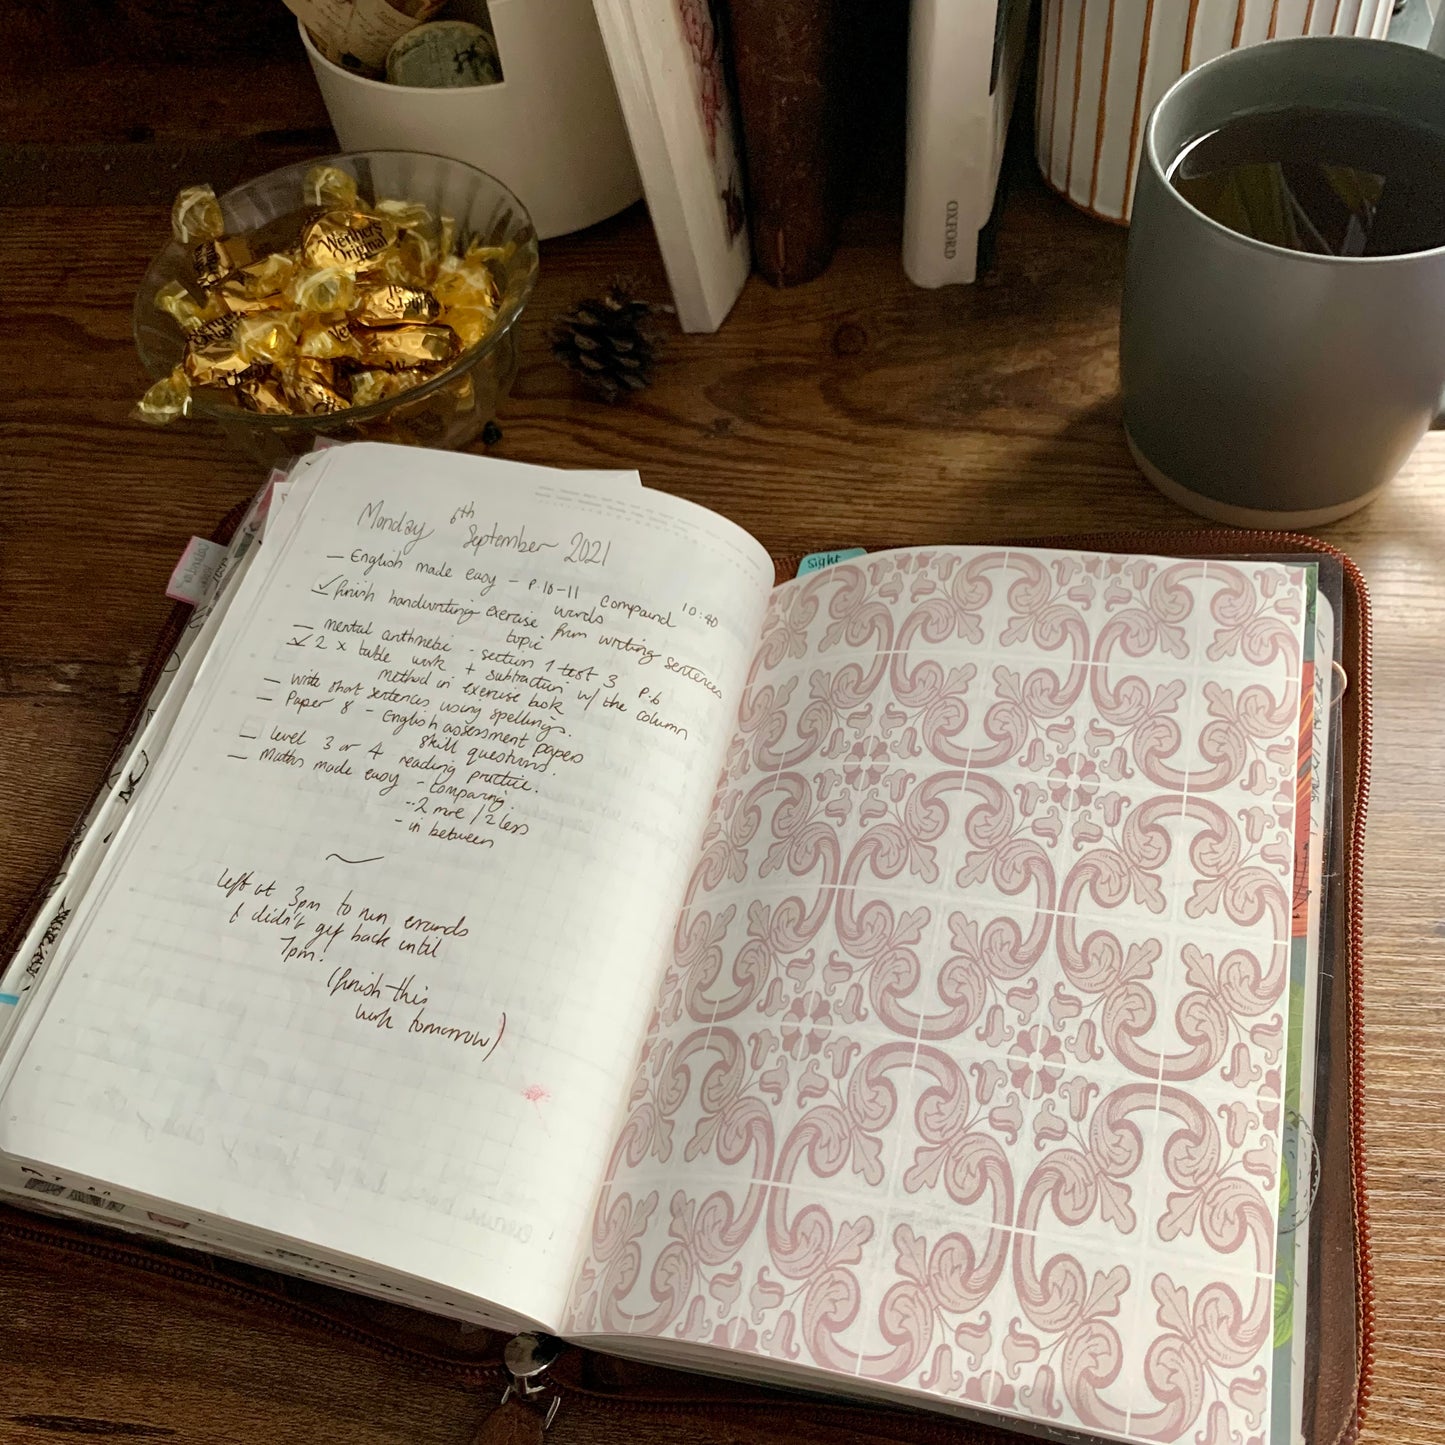 Werther's
Original
OXFORD
Sight
Monday 6th September 2021
— English made easy - P.10-11 Compound words 10:40
✓ finish handwriting exercise from writing sentences topic
— mental arithmetic - section 1 test 3 P.6
✓ 2 x table work + subtraction w/ the column
method in exercise book
— write short sentences using spellings.
— Paper 8 - English assessment papers
skill questions.
— level 3 or 4 reading practice.
— Maths made easy - Comparing.
- 2 more / 2 less
- in between
left at 3pm to run errands
& didn't get back until
7pm.
(finish this
work tomorrow)